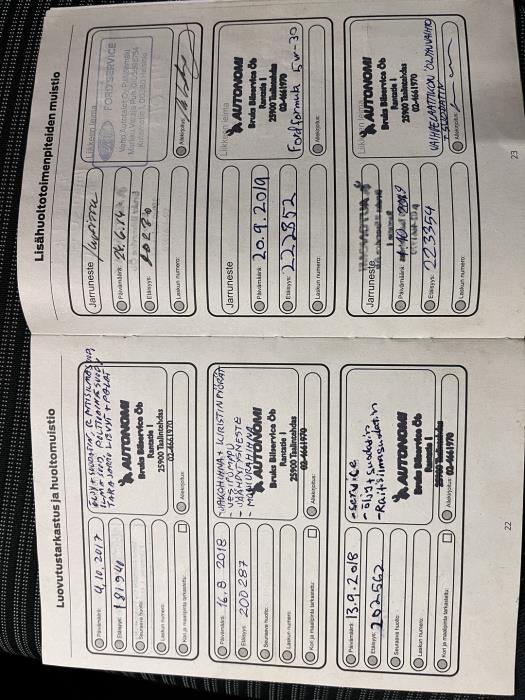 Luovutustarkastus ja huoltomuistio
Päivämäärä: 4.10.2017
Etäisyys: 181940
Seuraava huolto:
Laskun numero:
Kori ja maalipinta tarkastettu:
AUTONOMI
Bruks Bilservice Öb
Rantatie 1
25900 Taalintehdas
02-4661970
Allekirjoitus:
Päivämäärä: 16.8 2018
Etäisyys: 200 287
Seuraava huolto:
Laskun numero:
Kori ja maalipinta tarkastettu:
JAKOHIHNA + KIRISTINPYÖRÄT
- VESIPUMPU
- JÄÄHDYTINNESTE
AUTONOMI
Bruks Bilservice Öb
Rantatie 1
25900 Taalintehdas
02-4661970
Allekirjoitus:
Päivämäärä: 13.9.2018
Etäisyys: 202562
Seuraava huolto:
Laskun numero:
Kori ja maalipinta tarkastettu:
- service
- öljy + suodatin
- Raitisilmasuodatin
AUTONOMI
Bruks Bilservice Öb
Rantatie 1
25900 Taalintehdas
02-4661970
Allekirjoitus:
22
Lisähuoltotoimenpiteiden muistio
Jarruneste
Päivämäärä: 24.6.14
Etäisyys:
Laskun numero:
Liikkeen leima
FORD SERVICE
Allekirjoitus:
Jarruneste
Päivämäärä: 20.9.2019
Etäisyys: 222852
Laskun numero:
Liikkeen leima
AUTONOMI
Bruks Bilservice Öb
Rantatie 1
25900 Taalintehdas
02-4661970
Ford formula 5w-30
Allekirjoitus:
Jarruneste
Päivämäärä: 10 2019
Etäisyys: 223354
Laskun numero:
Liikkeen leima
AUTONOMI
Bruks Bilservice Öb
Rantatie 1
25900 Taalintehdas
02-4661970
VAIHDELAATIKON ÖLJYNVAIHTO
+ SUODATIN
Allekirjoitus:
23